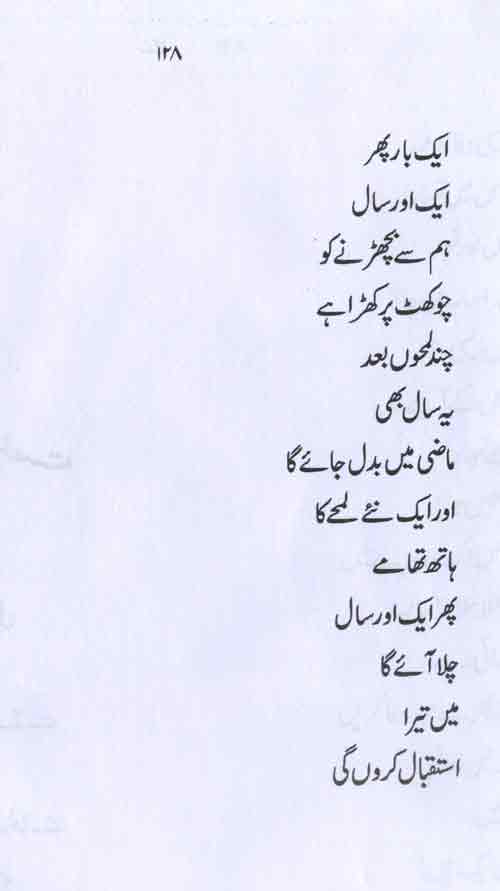 ۱۲۸
ایک بار پھر
ایک اور سال
ہم سے بچھڑنے کو
چوکھٹ پر کھڑا ہے
چند لمحوں بعد
یہ سال بھی
ماضی میں بدل جائے گا
اور ایک نئے لمحے کا
ہاتھ تھامے
پھر ایک اور سال
چلا آئے گا
میں تیرا
استقبال کروں گی